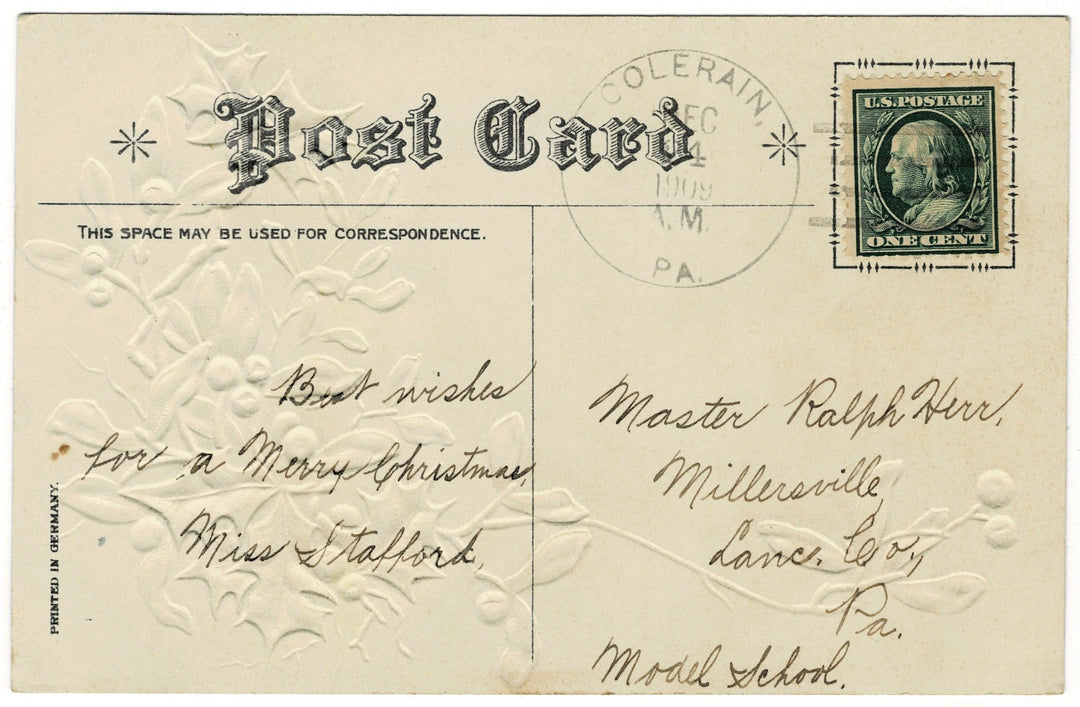 Post Card
COLERAIN,
1909
A.M.
PA.
U.S. POSTAGE
ONE CENT
THIS SPACE MAY BE USED FOR CORRESPONDENCE.
Best wishes
for a Merry Christmas,
Miss Stafford,
PRINTED IN GERMANY.
Master Ralph Herr,
Millersville,
Lanc. Co.,
Pa.
Model School.